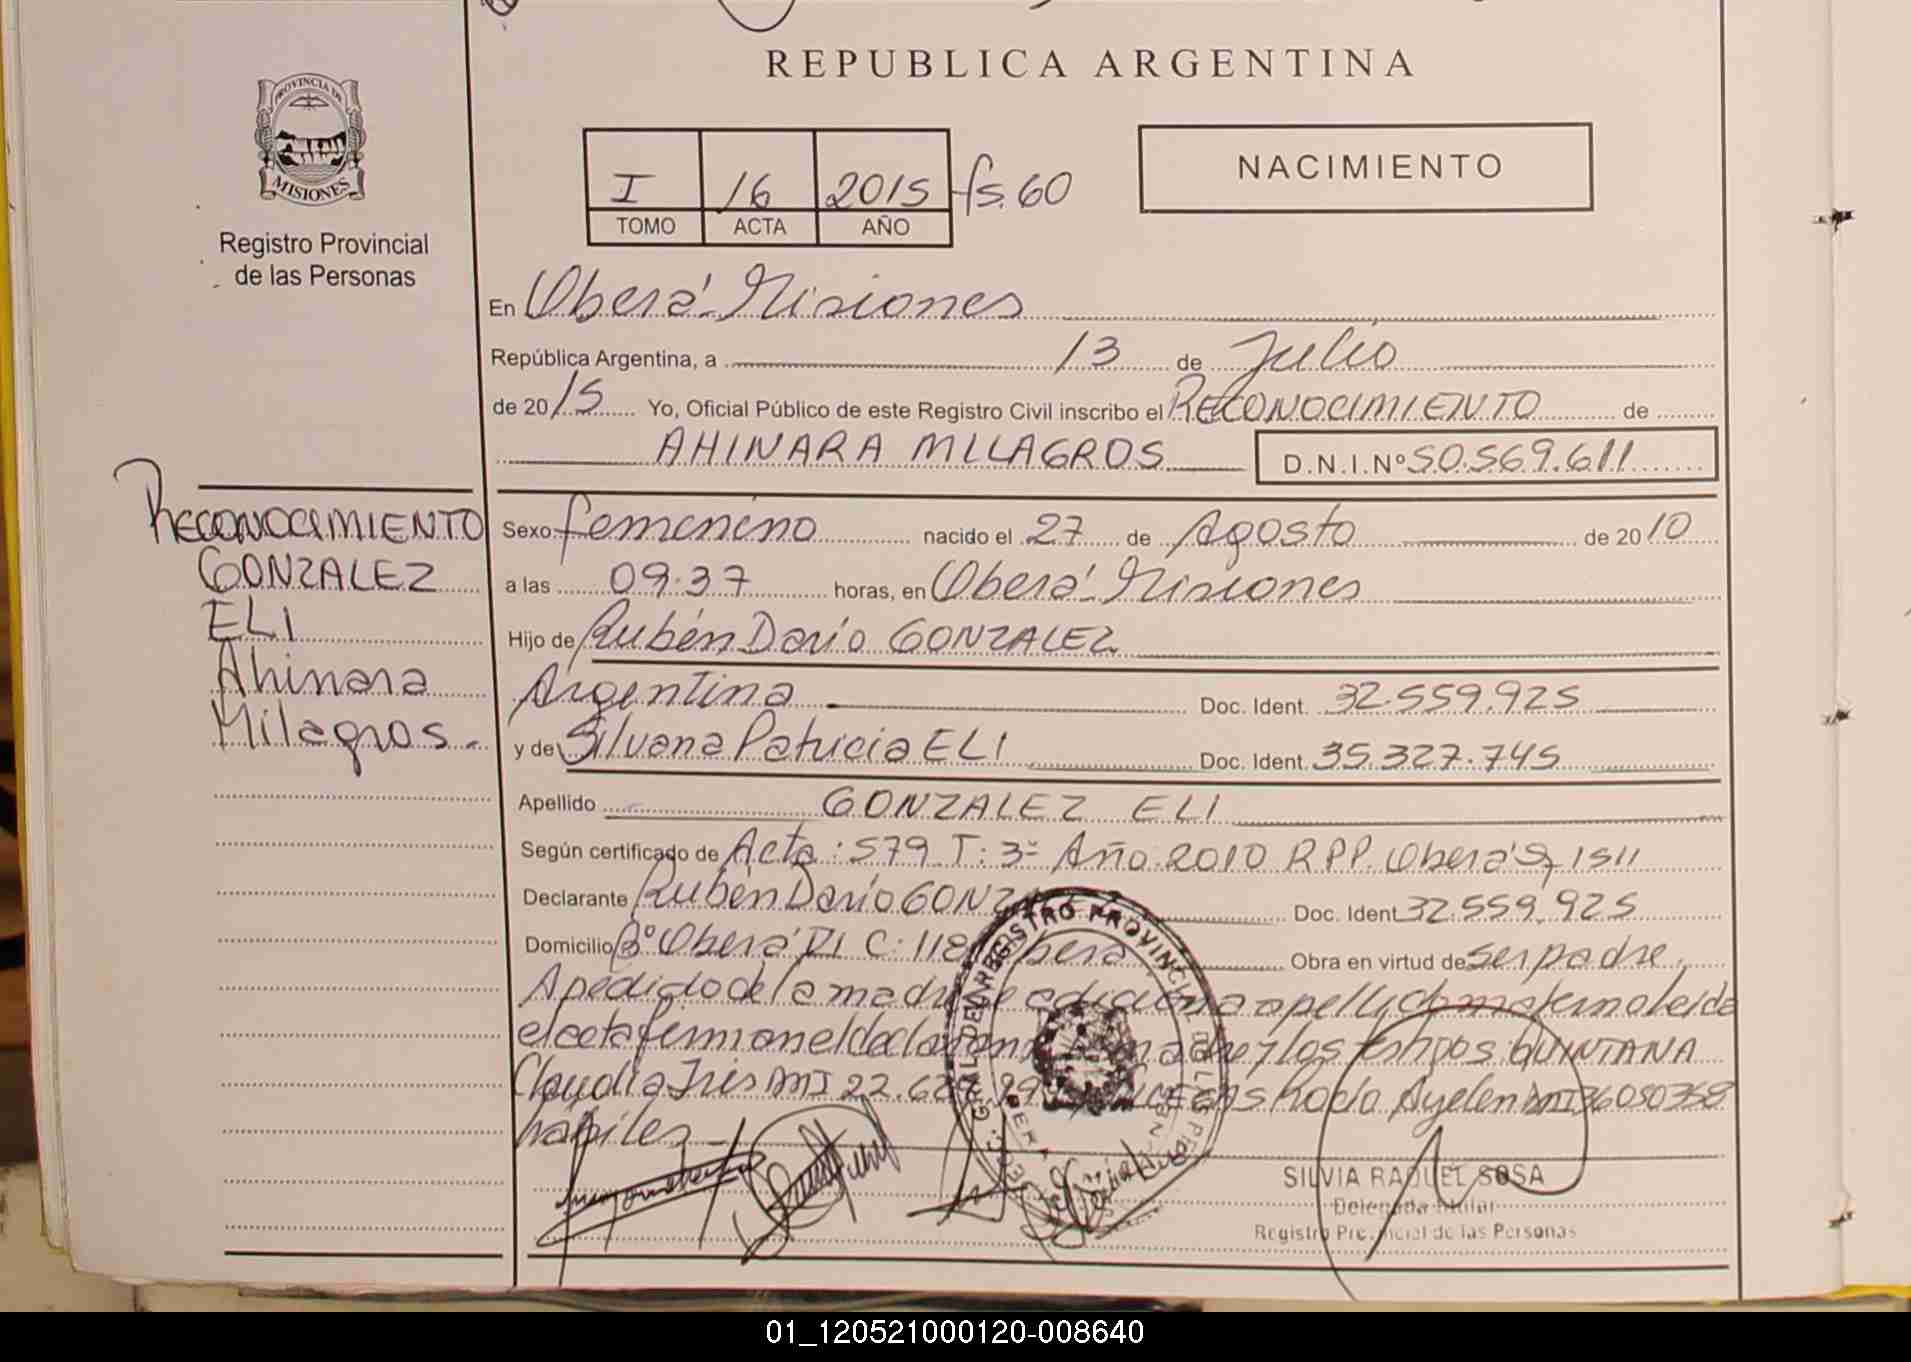 REPUBLICA ARGENTINA
PROVINCIA DE
MISIONES
Registro Provincial
de las Personas
I 16 2015 fs. 60
TOMO ACTA AÑO
NACIMIENTO
En Oberá - Misiones
República Argentina, a 13 de Julio
de 2015 Yo, Oficial Público de este Registro Civil inscribo el RECONOCIMIENTO de
AHINARA MILAGROS D.N.I.Nº 50.569.611
RECONOCIMIENTO
GONZALEZ
ELI
Ahinara
Milagros.
Sexo femenino nacido el 27 de Agosto de 2010
a las 09.37 horas, en Oberá - Misiones
Hijo de Rubén Darío GONZALEZ
Argentina Doc. Ident. 32.559.925
y de Silvana Patricia ELI Doc. Ident. 35.327.745
Apellido GONZALEZ ELI
Según certificado de Acta: 579 T: 3º Año 2010 RPP. Oberá 1511
Declarante Rubén Darío Doc. Ident 32.559.925
Domicilio Bº Oberá VI C: 118 Obera Obra en virtud de ser padre.
A pedido de la madre se adiciona apellido materno leida
el acta firman el declarante madre y los testigos QUINTANA
Claudia Iris MI 22. Rocio Ayelen MI 36050358
habiles
REGISTRO PROVINCIAL
SILVIA RAQUEL SOSA
Delegada titular
Registro Provincial de las Personas
01_120521000120-008640